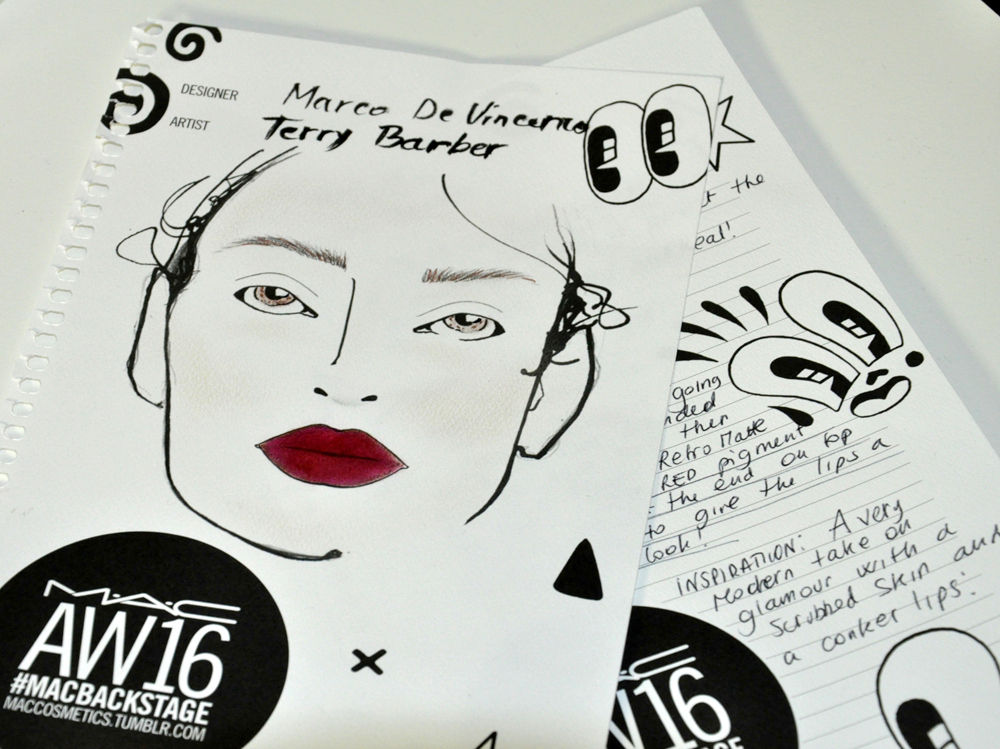 DESIGNER Marco De Vincenzo
ARTIST Terry Barber
MAC
AW16
#MACBACKSTAGE
MACCOSMETICS.TUMBLR.COM
the
going
ther
Retro Matte
RED pigment
the end on top
to give the lips a
look!
INSPIRATION: A very
Modern take on
glamour with a
scrubbed skin and
a conker lips.